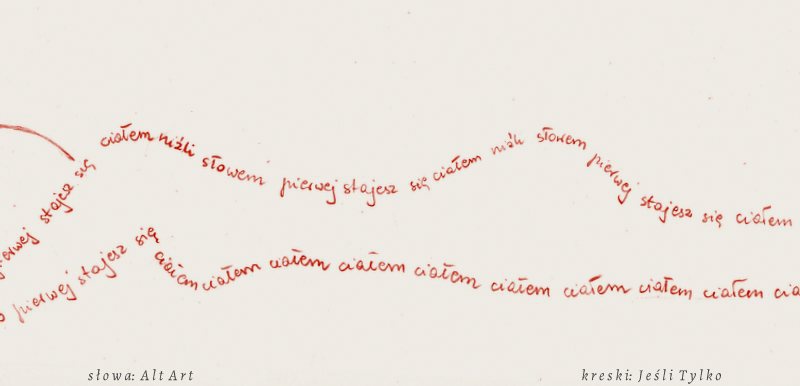 pierwej stajesz się ciałem niźli słowem pierwej stajesz się ciałem niźli słowem pierwej stajesz się ciałem
pierwej stajesz się ciałem ciałem ciałem ciałem ciałem ciałem ciałem ciałem ciałem
słowa: Alt Art
kreski: Jeśli Tylko